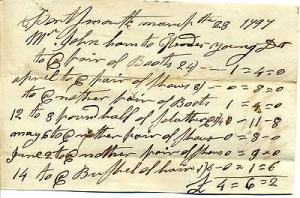 Portsmouth march th 28 1797
Mr John ham to Young Dr
to pair of Boots 24 — 1=4=0
april to pair of Shous 8/ — 0=8=0
to nother pair of Boots 1=4=0
12 to 8 pound half of 0-11-8
may 6 to nother pair of Shous 0=8=0
june 2 to nother pair of Shous 0=9=0
14 to Bushel of hair 1/6 - 0=1=6
£ 4=6=2